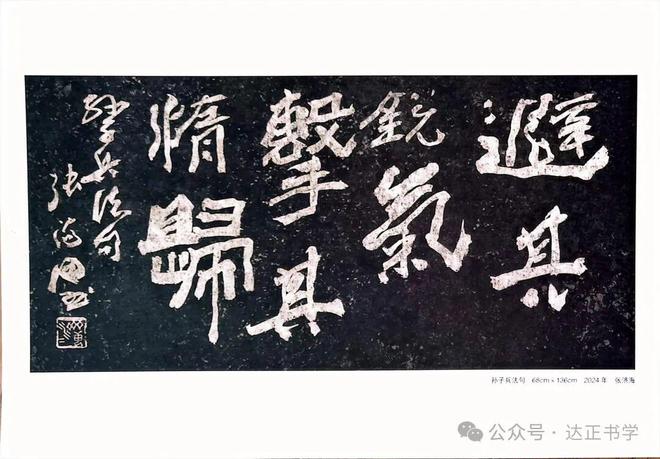 避其
銳氣
擊其
惰歸
孫子兵法句
张洪海
孙子兵法句 68cm×136cm 2024年 张洪海
公众号·达正书学